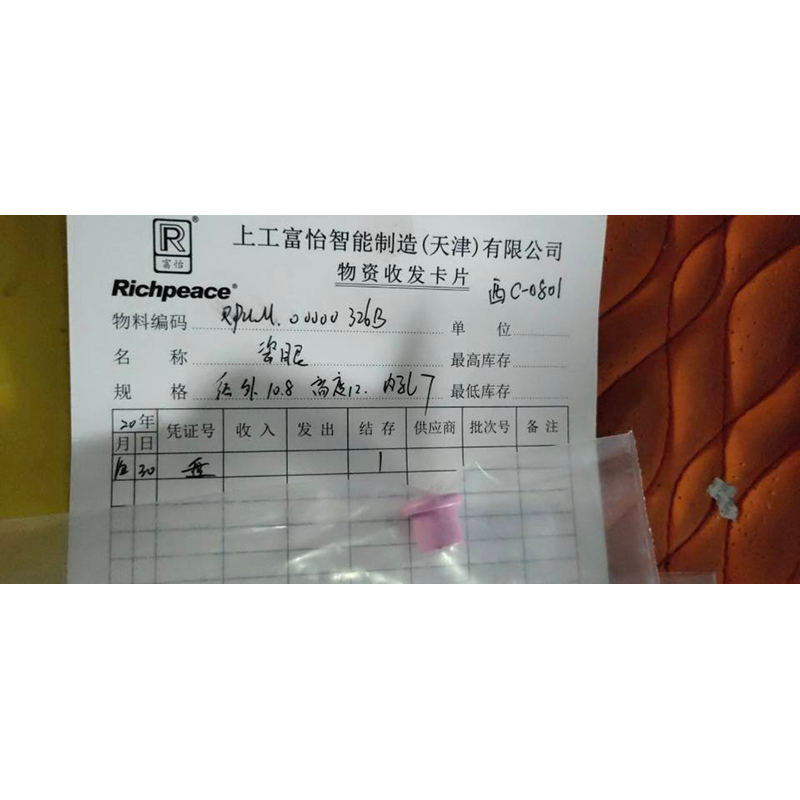 R®
富怡
Richpeace®
上工富怡智能制造(天津)有限公司
物资收发卡片
西C-0801
物料编码 RPMM.00000326B 单 位
名 称 瓷眼 最高库存
规 格 径外10.8 高度12. 内孔7 最低库存
20年 凭证号 收入 发出 结存 供应商 批次号 备注
月 日
12 30 1